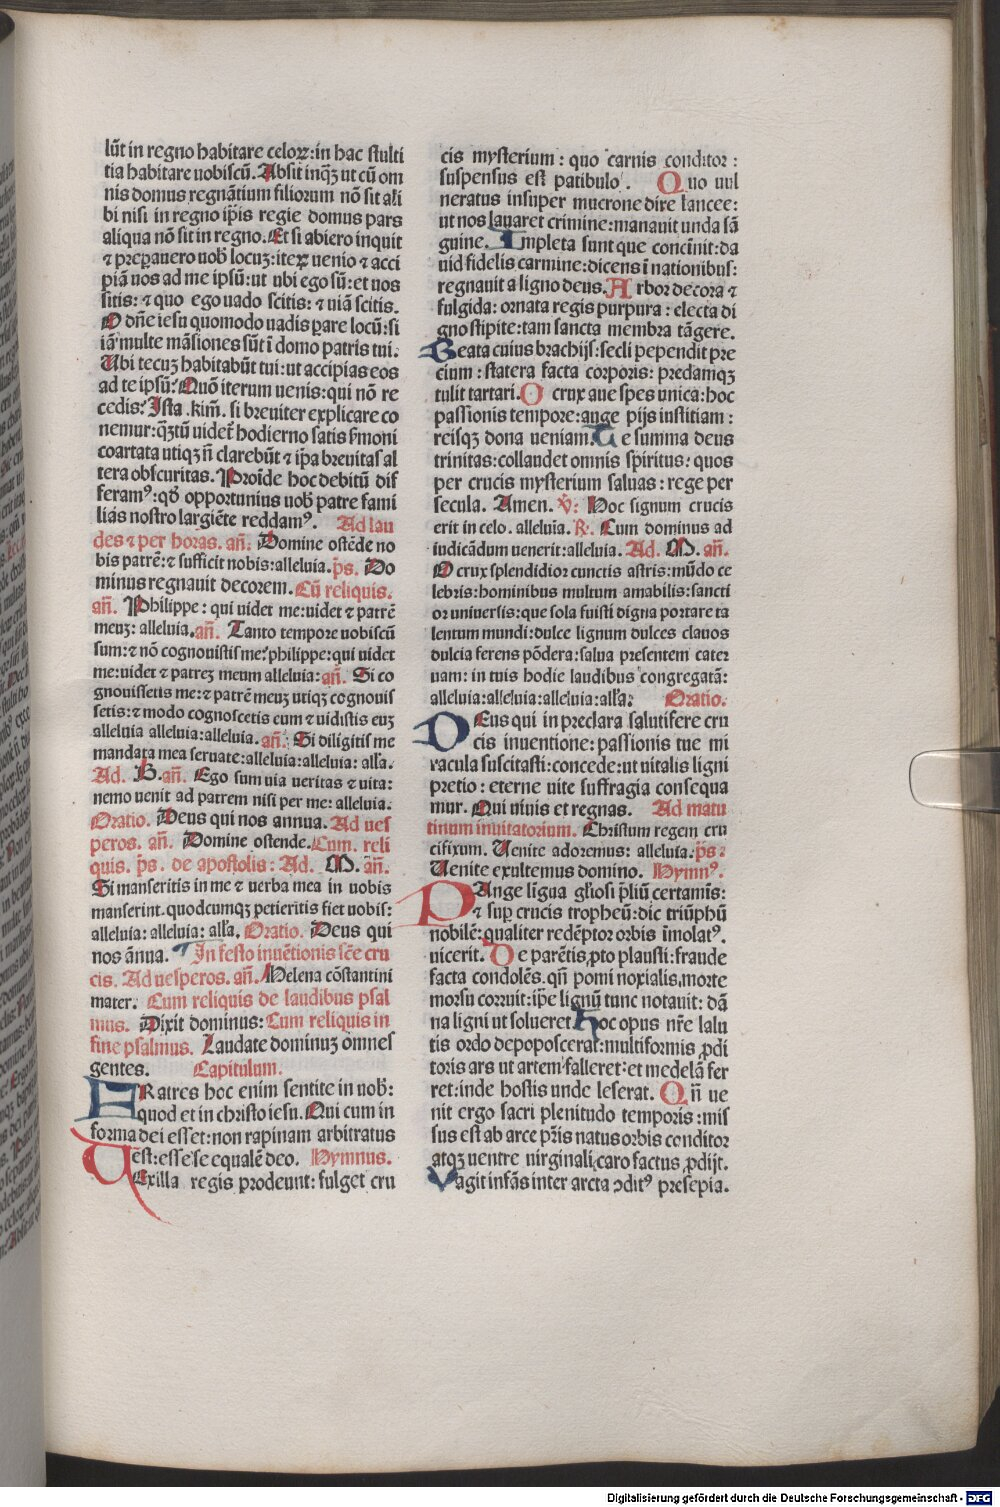 lūt in regno habitare celoꝝ: in hac stulti
tia habitare uobiscū. Absit inqꝫ ut cū om
nis domus regnātium filiorum nō sit ali
bi nisi in regno ip̄is regie domus pars
aliqua nō sit in regno. Et si abiero inquit
⁊ prep̄auero uob̄ locuꝫ: iteꝝ uenio ⁊ acci
piā uos ad me ipsū: ut ubi ego sū: et uos
sitis: ⁊ quo ego uado scitis: ⁊ uiā scitis.
O dn̄e iesu quomodo uadis parare locū: si
iā multe māsiones sūt ī domo patris tui.
Ubi tecuꝫ habitabūt tui: ut accipias eos
ad te ipsū: Quō iterum uenis: qui nō re
cedis: Ista .km̄. si breuiter explicare co
nemur: qꝫtū uidet᷑ hodierno satis s̄moni
coartata utiqꝫ n̄ clarebūt ⁊ ip̄a breuitas al
tera obscuritas. Proīde hoc debitū dif
feramꝰ: qd̄ opportunius uob̄ patre fami
lias nostro largiēte reddamꝰ. Ad lau
des ⁊ per horas. an̄. Domine ostēde no
bis patrē: ⁊ sufficit nobis: alleluia. ps̄. Do
minus regnauit decorem. Cū reliquis.
an̄. Philippe: qui uidet me: uidet ⁊ patrē
meuꝫ: alleluia. an̄. Tanto tempore uobiscū
sum: ⁊ nō cognouistis me: philippe: qui uidet
me: uidet ⁊ patreꝫ meum alleluia: an̄. Si co
gnouissetis me: ⁊ patrē meuꝫ utiqꝫ cognouis
setis: ⁊ modo cognoscetis eum ⁊ uidistis euꝫ
alleluia alleluia: alleluia. an̄. Si diligitis me
mandata mea seruate: alleluia: alleluia: all̄a.
Ad. B. an̄. Ego sum uia ueritas ⁊ uita:
nemo uenit ad patrem nisi per me: alleluia.
Oratio. Deus qui nos annua. Ad ues
peros. an̄. Domine ostende. Cum. reli
quis. ps̄. de apostolis: Ad. M. an̄.
Si manseritis in me ⁊ uerba mea in uobis
manserint. quodcumqꝫ petieritis fiet uobis:
alleluia: alleluia: all̄a. Oratio. Deus qui
nos ānua. In festo inuētionis scē cru
cis. Ad uesperos. an̄. Helena cōstantini
mater. Cum reliquis de laudibus psal
mus. Dixit dominus: Cum reliquis in
fine psalmus. Laudate dominuꝫ omnes
gentes. Capitulum.
FRatres hoc enim sentite in uob̄:
quod et in christo iesu. Qui cum in
forma dei esset: non rapinam arbitratus
est: esse se equalē deo. Hymnus.
VExilla regis prodeunt: fulget cru
cis mysterium: quo carnis conditor:
suspensus est patibulo. Quo uul
neratus insuper mucrone dire lancee:
ut nos lauaret crimine: manauit unda sā
guine. Impleta sunt que concīnit: da
uid fidelis carmine: dicens ī nationibus:
regnauit a ligno deus. Arbor decora ⁊
fulgida: ornata regis purpura: electa di
gno stipite: tam sancta membra tāgere.
Beata cuius brachijs: secli pependit pre
cium: statera facta corporis: predamqꝫ
tulit tartari. O crux aue spes unica: hoc
passionis tempore: auge pijs institiam:
reisqꝫ dona ueniam. Te summa deus
trinitas: collaudet omnis spiritus: quos
per crucis mysterium saluas: rege per
secula. Amen. ℣: Hoc signum crucis
erit in celo. alleluia. ℟. Cum dominus ad
iudicādum uenerit: alleluia. Ad. M. an̄.
O crux splendidior cunctis astris: mūdo ce
lebris: hominibus multum amabilis: sancti
or uniuersis: que sola fuisti digna portare ta
lentum mundi: dulce lignum dulces clauos
dulcia ferens pōdera: salua presentem cater
uam: in tuis hodie laudibus congregatā:
alleluia: alleluia: alleluia: all̄a: Oratio.
DEus qui in preclara salutifere cru
cis inuentione: passionis tue mi
racula suscitasti: concede: ut uitalis ligni
pretio: eterne uite suffragia consequa
mur. Qui uiuis et regnas. Ad matu
tinum inuitatorium. Christum regem cru
cifixum. Uenite adoremus: alleluia. ps̄:
Uenite exultemus domino. Hymnꝰ.
PAnge līgua gl̄iosi p̄liū certamīs:
⁊ suꝑ crucis tropheū: dic triūphū
nobilē: qualiter redēptor orbis īmolatꝰ.
uicerit. De parētis ꝓto plausti: fraude
facta condolēs. qn̄ pomi noxialis, morte
morsu corruit: ip̄e lignū tunc notauit: dā
na ligni ut solueret. Hoc opus nr̄e salu
tis ordo depoposcerat: multiformis ꝓdi
toris ars ut artem falleret: et medelā fer
ret: inde hostis unde leserat. Qn̄ ue
nit ergo sacri plenitudo temporis: mis
sus est ab arce pr̄is natus orbis conditor
atqꝫ uentre uirginali, caro factus ꝓdijt.
Vagit infās inter arcta ↄditꝰ presepia.
Digitalisierung gefördert durch die Deutsche Forschungsgemeinschaft - DFG